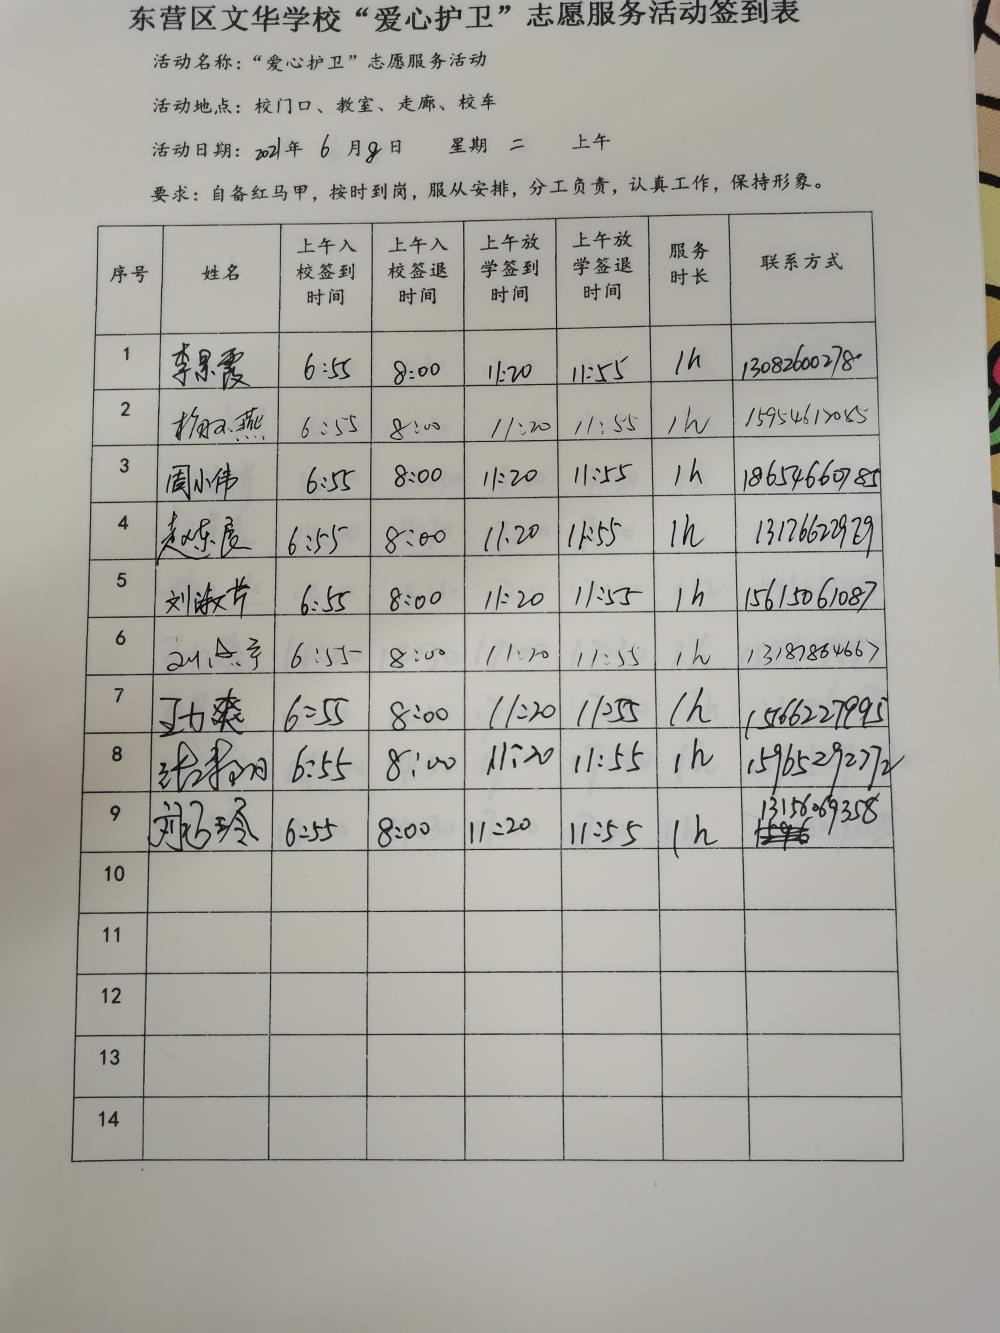 东营区文华学校“爱心护卫”志愿服务活动签到表
活动名称：“爱心护卫”志愿服务活动
活动地点：校门口、教室、走廊、校车
活动日期：2021年 6 月8日 星期 二 上午
要求：自备红马甲，按时到岗，服从安排，分工负责，认真工作，保持形象。
序号 姓名 上午入校签到时间 上午入校签退时间 上午放学签到时间 上午放学签退时间 服务时长 联系方式
1 李果霞 6:55 8:00 11:20 11:55 1h 13082600278
2 6:55 8:00 11:20 11:55 1h
3 周小伟 6:55 8:00 11:20 11:55 1h 18654660785
4 6:55 8:00 11:20 11:55 1h
5 刘淑芹 6:55 8:00 11:20 11:55 1h 15615061087
6 6:55 8:00 11:20 11:55 1h 13187864667
7 王力爽 6:55 8:00 11:20 11:55 1h 15166227995
8 6:55 8:00 11:20 11:55 1h 15965292772
9 6:55 8:00 11:20 11:55 1h 13156069358
10
11
12
13
14